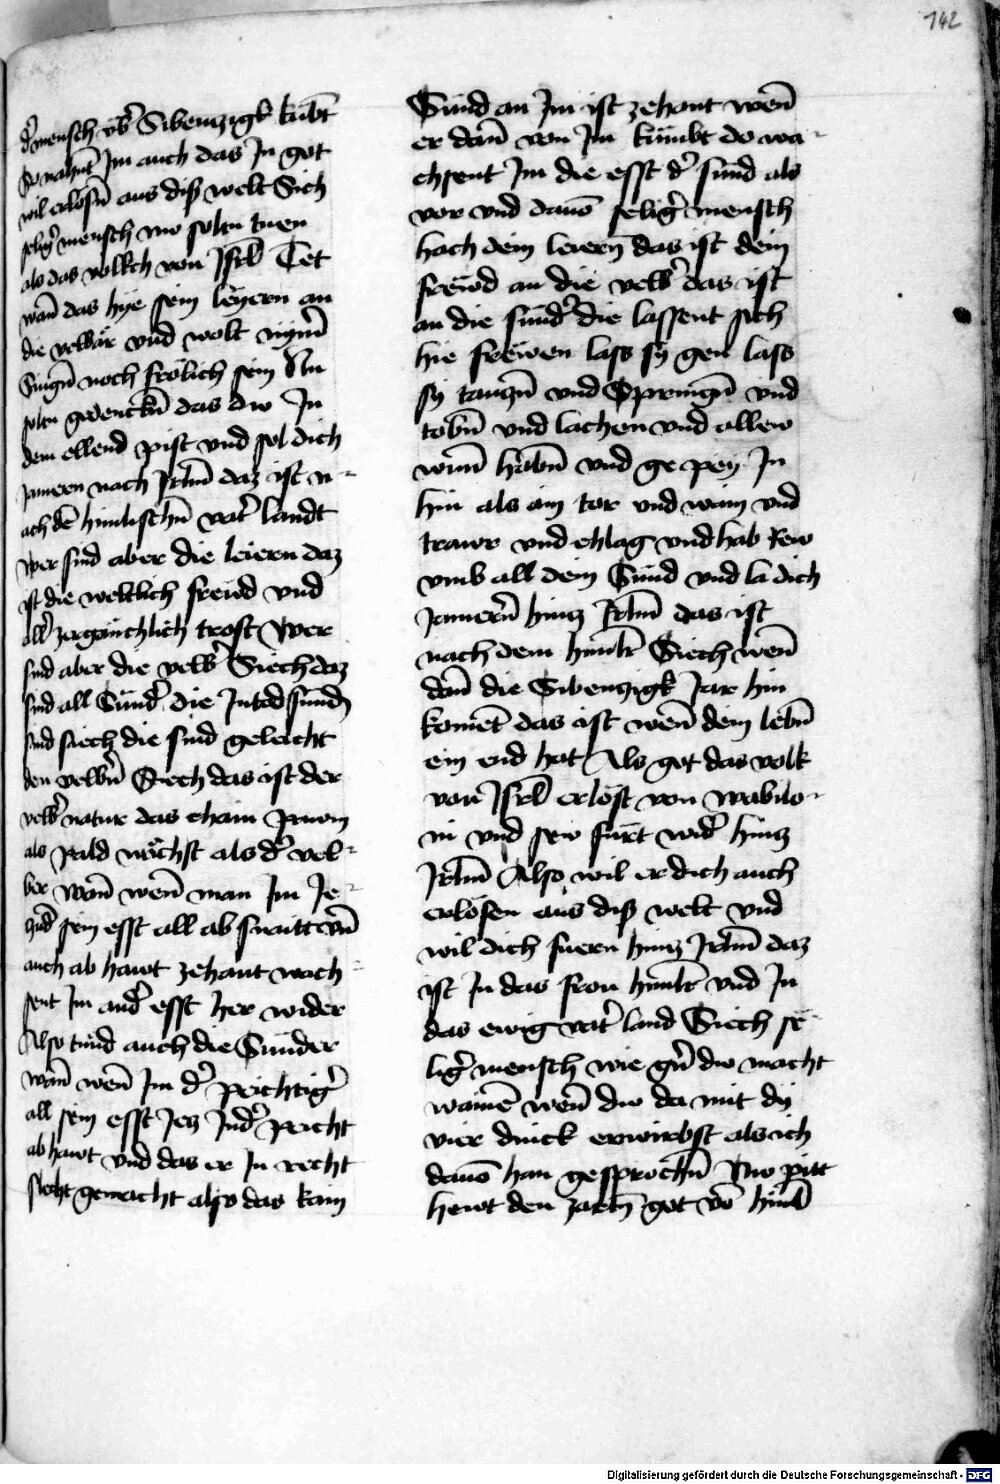 142
d' mensch vb' Sibenzigk kūbt
So nahnt Im auch das In got
wil erlosn̄ aus diß welt Sich
selig' mensch nw soltu tuen
als das volkch von Jsrl̄ Tet
wan̄ das hye sein leyern an
die velbär vnd wolt nym̄er
Singn̄ noch frölich sein Nu
soltu gedenckn̄ das dw In
dem ellend pist vnd sol dich
Jameren nach Jrlm̄ daz ist n-
ach dē himlischn̄ vat' landt
Wer sind aber die leiern daz
ist die weltlich frewd vnd
all' zergänchlich trost Wer
sind aber die velb' Siech daz
sind all Sünd' die In tod sunden
sind siech die sind geleicht
den velbn̄ Siech das ist der
velb' nature das chain pawm
als pald wächst als d' vel-
ber Wan̄ wen̄ man Im Je-
zud' sein esst all ab sneitt vn̄
auch ab hawt zehant wach-
sent Im and' esst her wider
Also tund auch die Sünder
wan̄ wen̄ Im d' peichtig'
all sein esst Jetz In d' peicht
ab hawt vnd das er In recht
slecht gemacht also das kain
Sünd an Im ist zehant wen̄
er dan̄ von Im kumbt do wa-
chsent Im die esst d' sund als
vor vnd dauō selig' mensch
hach dein leiern̄ das ist dein
frewd an die velb' das ist
an die sünd' die lassent sich
hie frewen lass sy gen lass
sy tanczn̄ vnd Springn̄ vnd
tobn̄ vnd lachen vnd allew
wun̄ habn̄ vnd ge pey In
hin als ain tor vnd wain vnd
trawr vnd chlag vnd hab Rew
vmb all dein Sünd vnd la dich
Jamern̄ hincz Jrlm̄ das ist
nach dem himlr̄ Siech wen̄
dan̄ die Sibenzigk Jar hin
komēt das ist wen̄ dein lebn̄
ein end hat Als got das volk
von Jsrl̄ erlöst von wabilo-
ni vnd sew fürt wid' hincz
Jrlm̄ Also wil er dich auch
erlösen aus diß welt vnd
wil dich fueren hincz Jrlm̄ daz
ist In das fron himlr̄ vnd In
das ewig vat' land Siech se-
lig' mensch wie gn̄ dw macht
wainē wen̄ dw da mit dy
vier dinck erwirbst als ich
dauō han gesprochn̄ Nw pitt
hewt den zartn̄ got vō himl̄
Digitalisierung gefördert durch die Deutsche Forschungsgemeinschaft - DFG